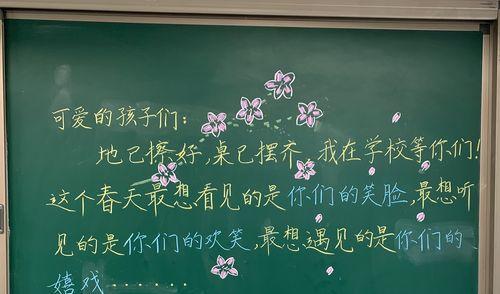 可爱的孩子们：
地已擦好,桌已摆齐,我在学校等你们!
这个春天最想看见的是你们的笑脸,最想听
见的是你们的欢笑,最想遇见的是你们的
嬉戏······